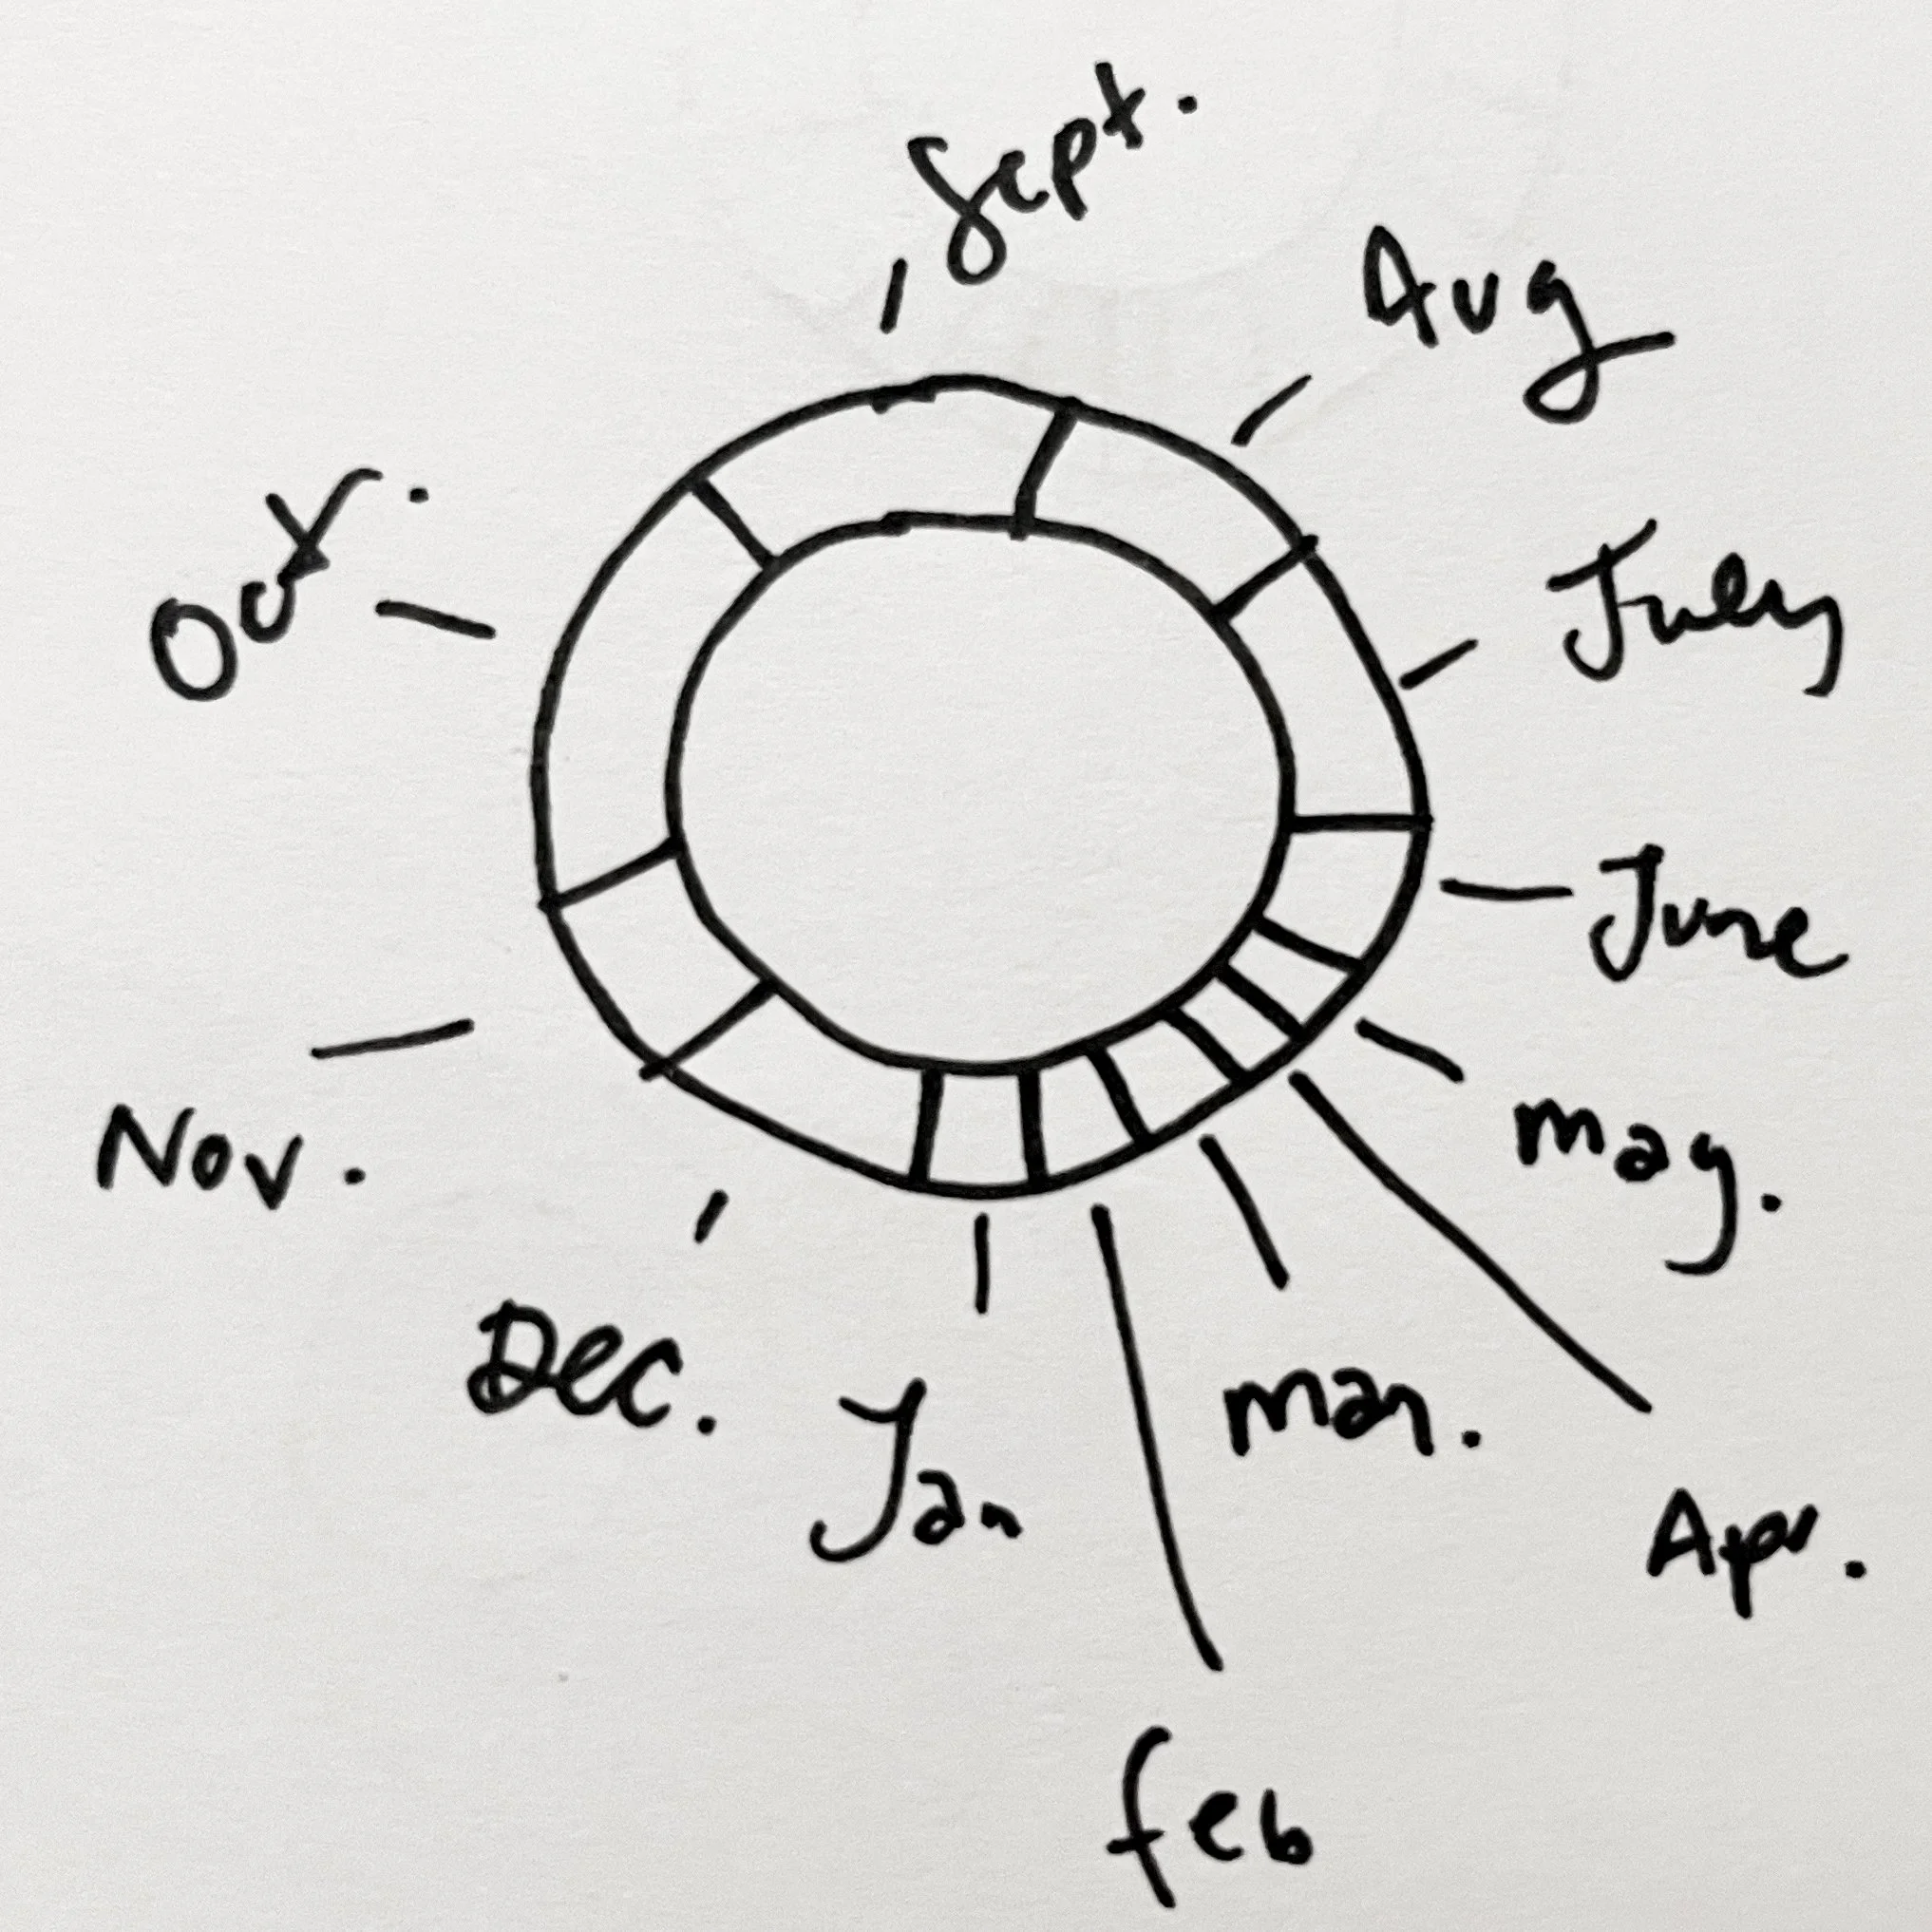 Sept.
Aug
July
June
may.
Apr.
mar.
feb
Jan
Dec.
Nov.
Oct.